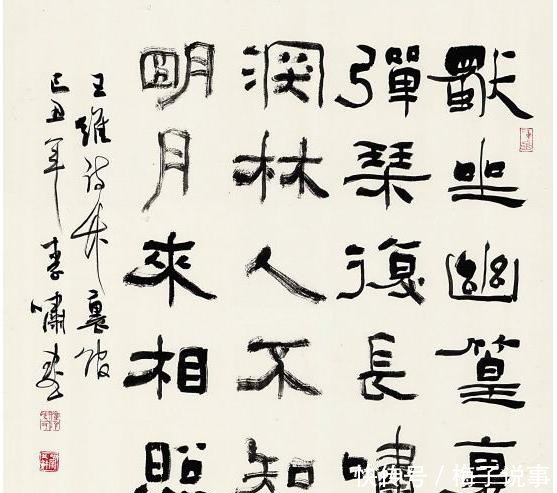 獨坐幽篁裏
彈琴復長嘯
深林人不知
明月來相照
王維詩竹裏館
己丑年 嘯
快传号／梅子说事